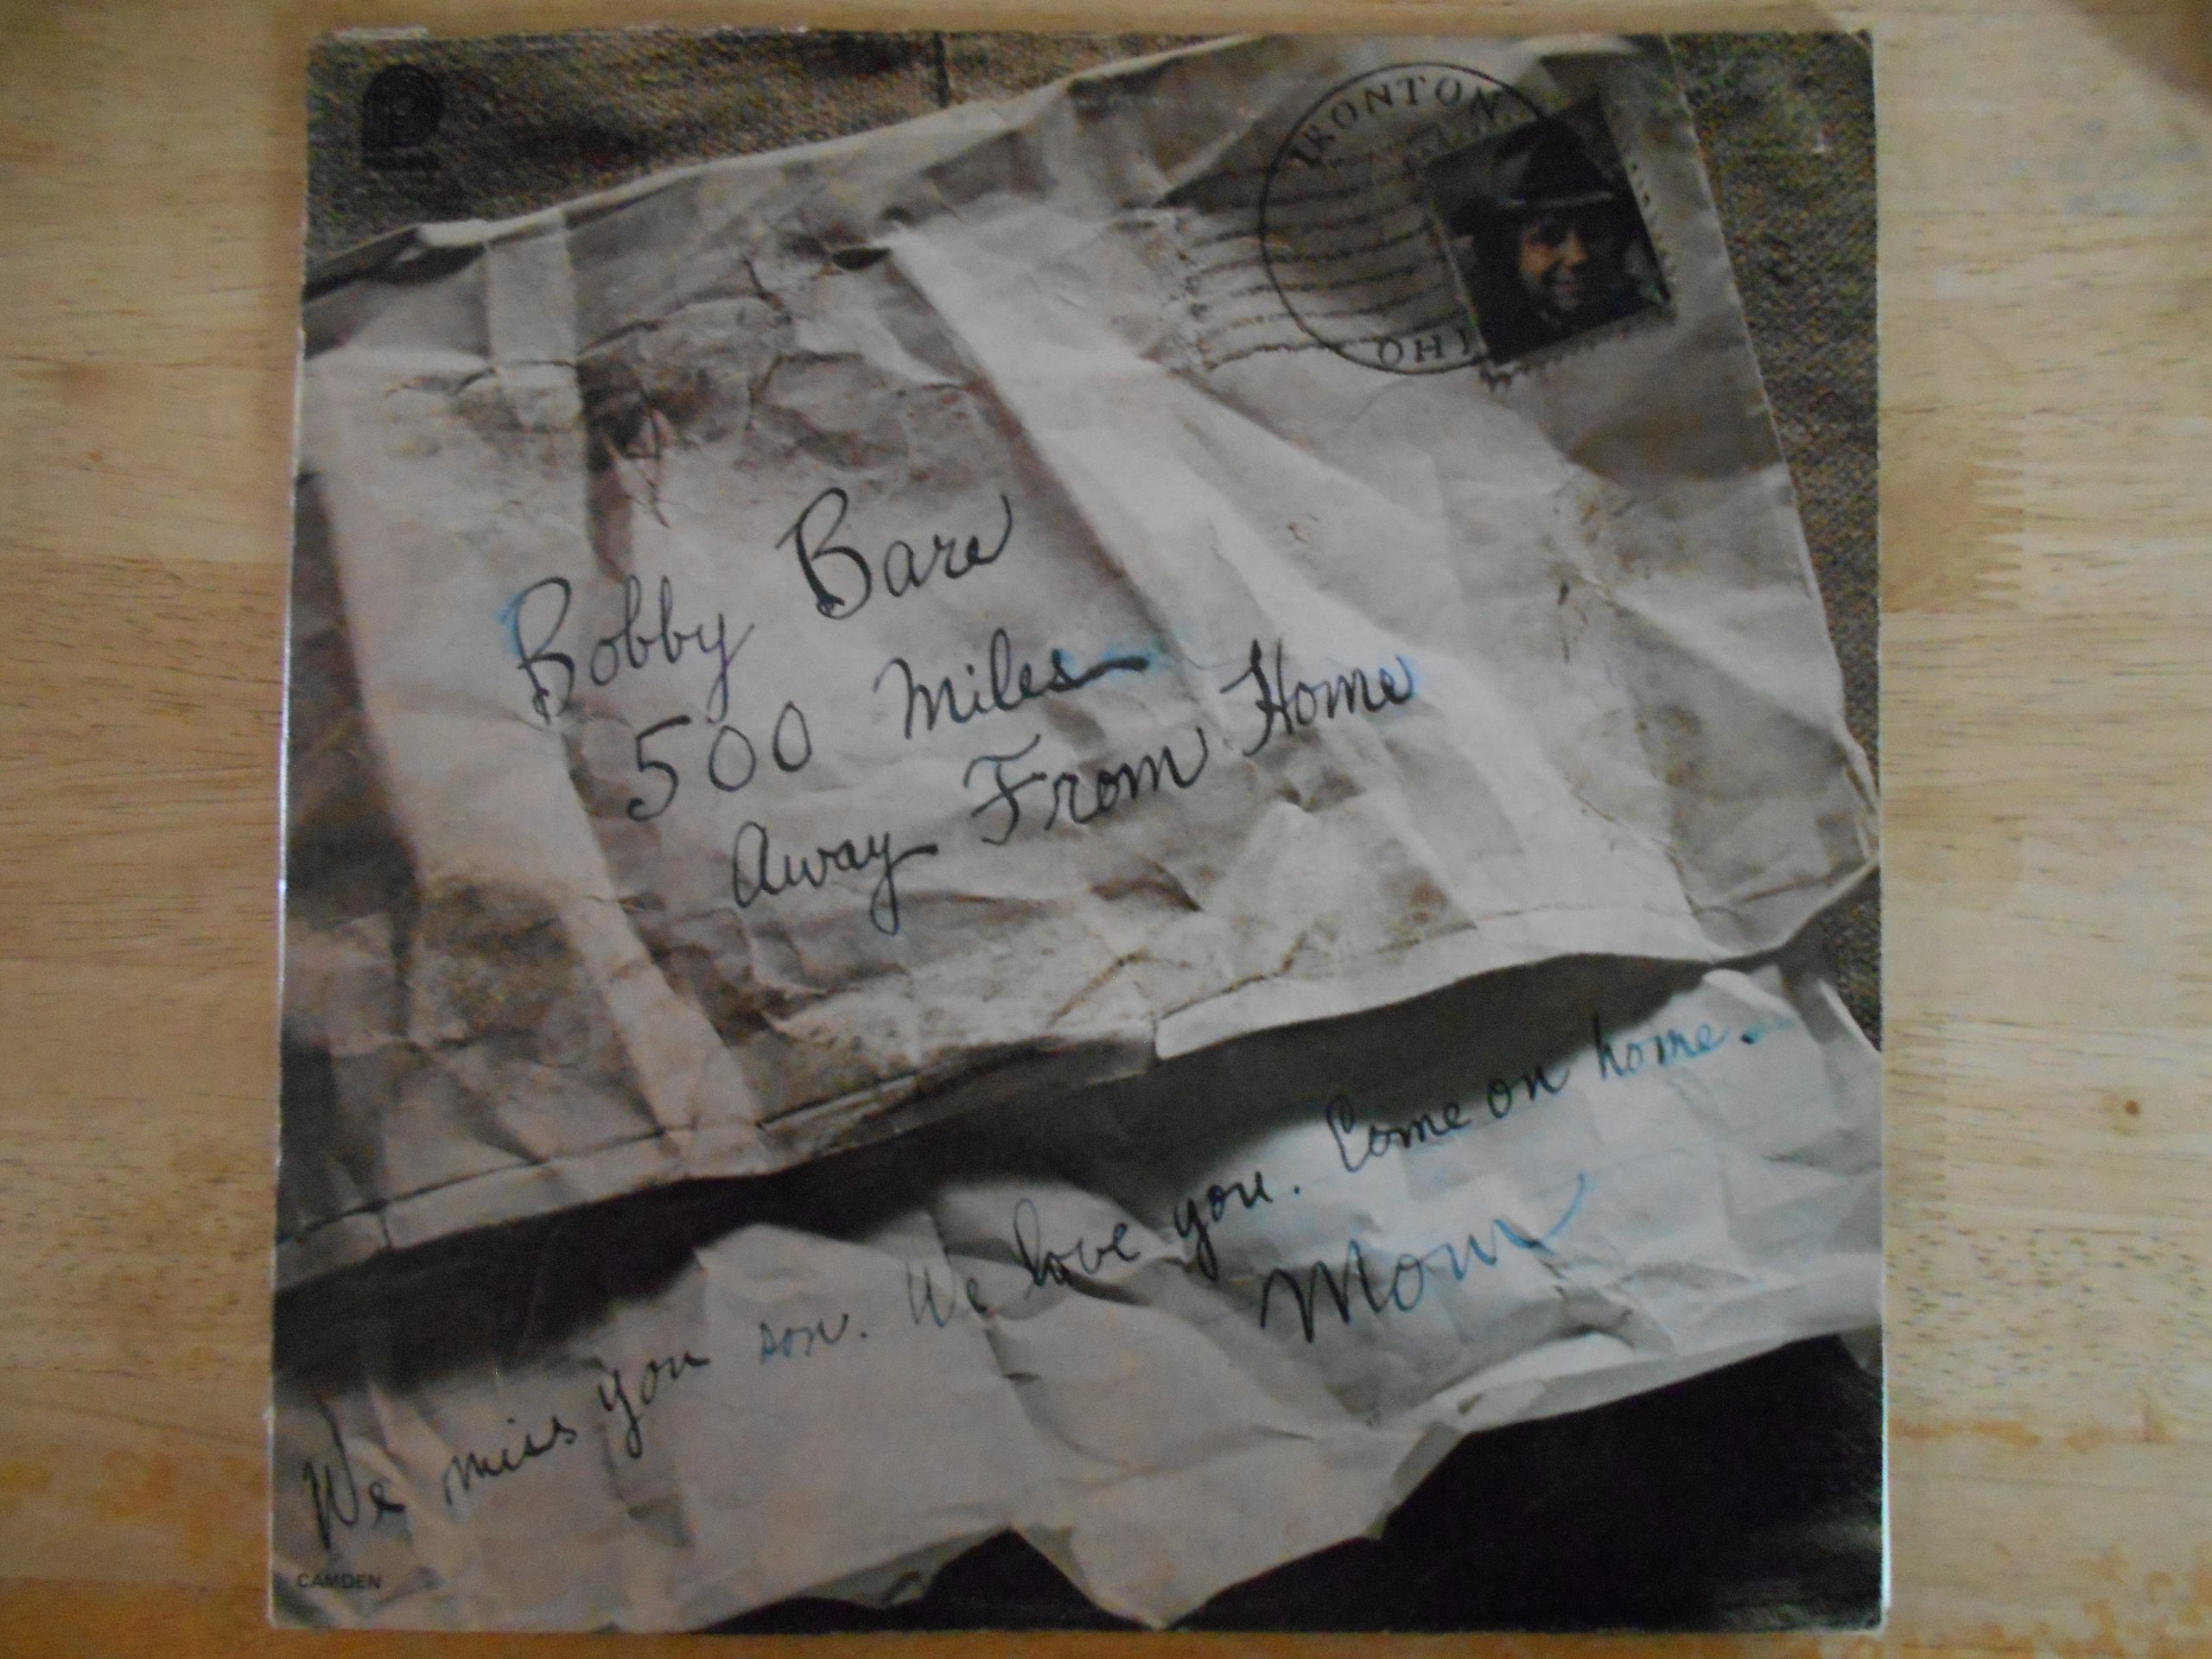 IRONTON
OHI
Bobby Bare
500 Miles
Away From Home
We miss you son. We love you. Come on home.
Mom
CAMDEN